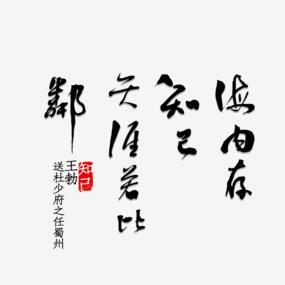 海内存
知己
天涯若比
鄰
王勃
送杜少府之任蜀州
知己